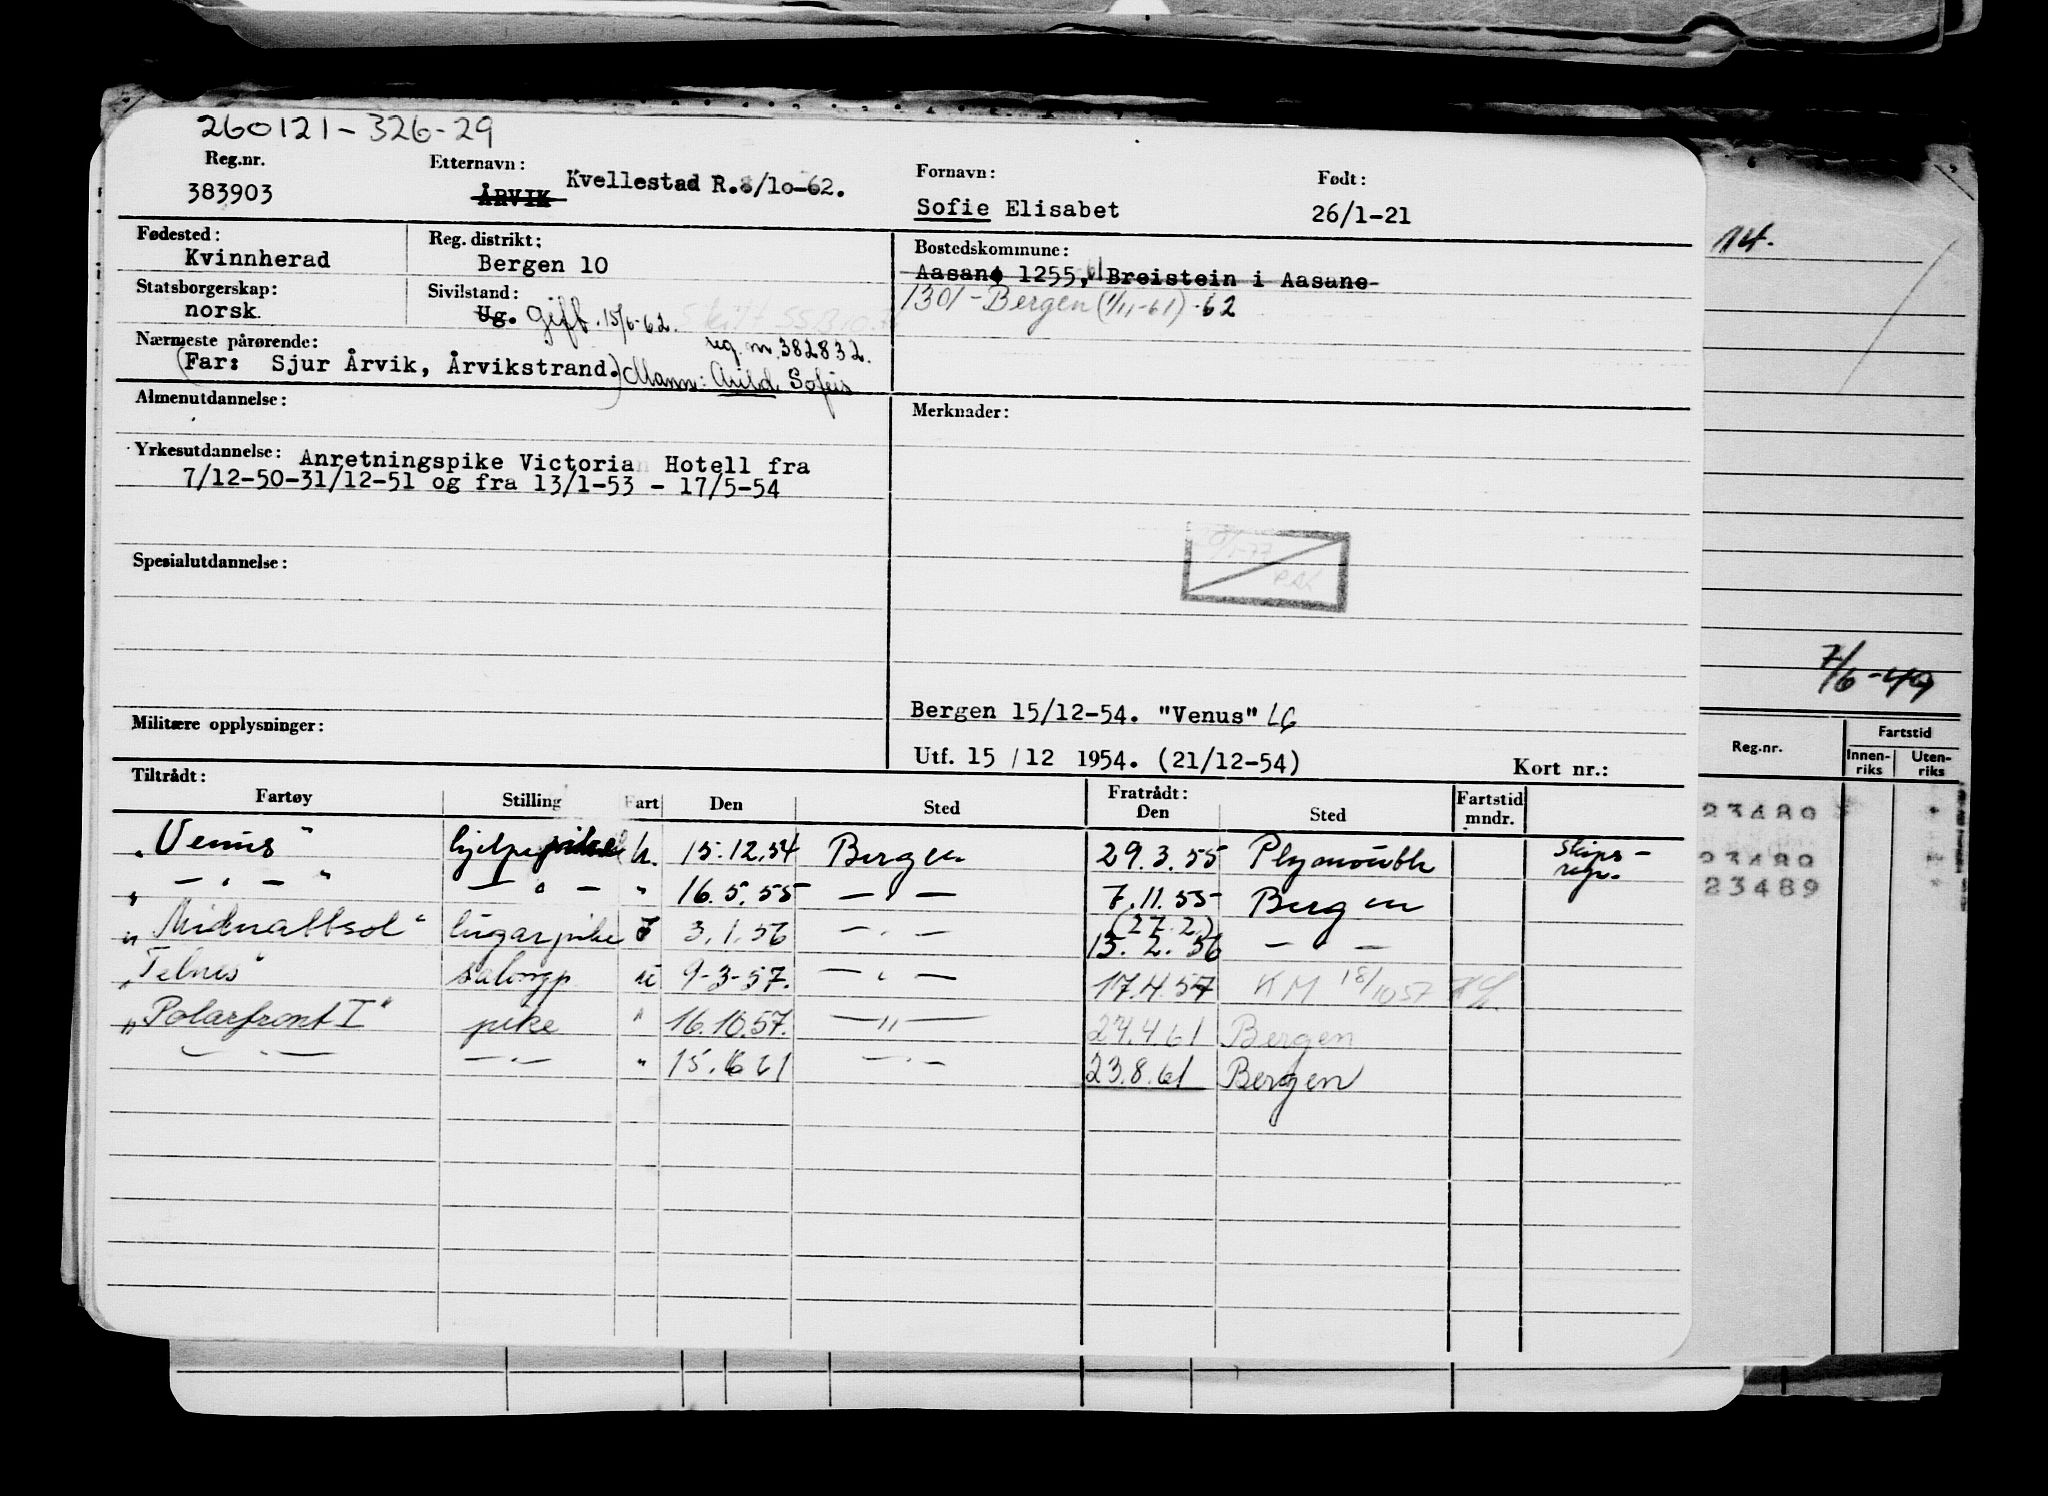 260121-326-29
Reg.nr. Etternavn: Fornavn: Født:
383903 ÅRVIK Kvellestad R.8/10-62. Sofie Elisabet 26/1-21
Fødested: Reg. distrikt: Bostedskommune:
Kvinnherad Bergen 10 Aasane 1255, Breistein i Aasane
Statsborgerskap: Sivilstand: 1301-Bergen (1/11-61) -62
norsk. Ug. Gift. 15/6-62.
Nærmeste pårørende: reg. nr. 382832.
(Far: Sjur Årvik, Årvikstrand.) Mann: Sofus
Almenutdannelse: Merknader:
Yrkesutdannelse: Anretningspike Victoria Hotell fra
7/12-50-31/12-51 og fra 13/1-53 - 17/5-54
Spesialutdannelse:
Bergen 15/12-54. "Venus" LG
Militære opplysninger:
Utf. 15 / 12 1954. (21/12-54) Kort nr.:
Tiltrådt: Fratrådt: Fartstid
Fartøy Stilling Fart Den Sted Den Sted mndr.
"Venus" hjelpepike u. 15.12.54 Bergen 29.3.55 Plymouth Skips-
regn.
" — " — " — " — " 16.5.55 — " — 7.11.55 Bergen
(27.2)
"Midnattsol" lugarpike I 3.1.56 — " — 13.2.56 — " —
"Telnes" salongp. u 9-3-57. — " — 17.4.57 KM 18/10 57
"Polarfront I" pike " 16.10.57. — " — 24.4.61 Bergen
— " — — " — " 15.6 61 — " — 23.8.61 Bergen
14.
7/6-49
Reg.nr. Fartstid
Innen-
riks Uten-
riks
23489
23489
23489